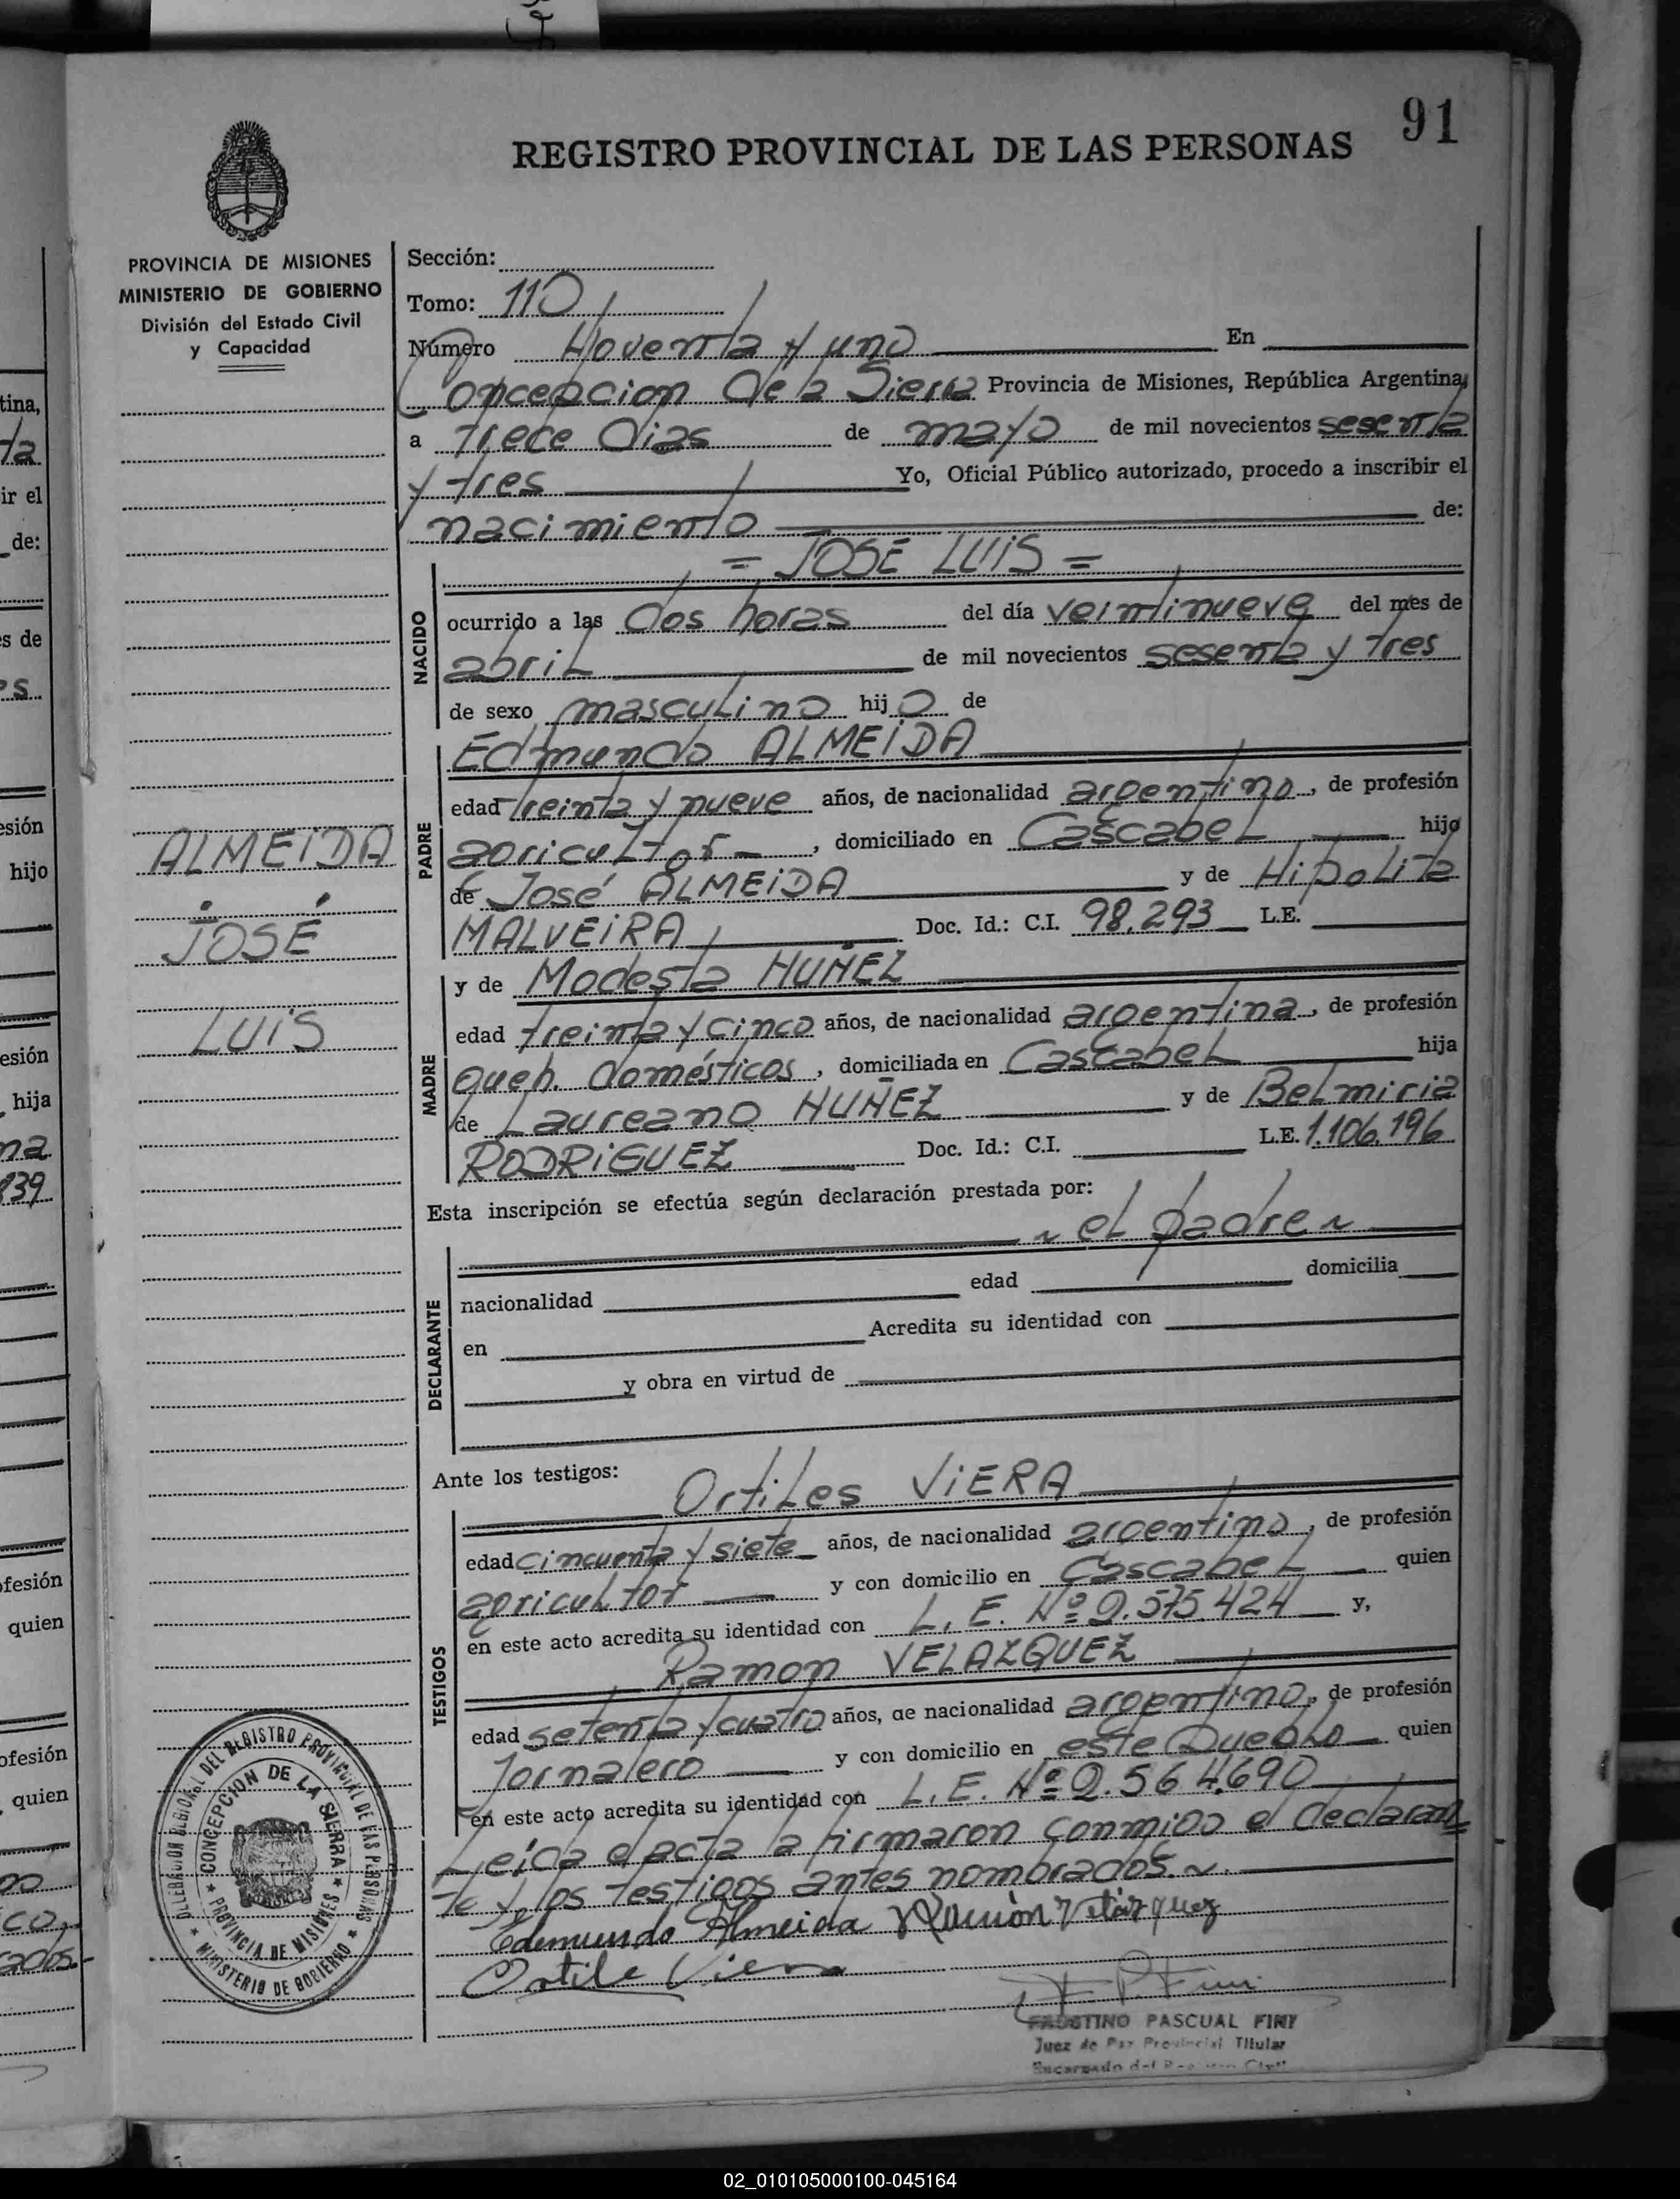 91
REGISTRO PROVINCIAL DE LAS PERSONAS
PROVINCIA DE MISIONES
MINISTERIO DE GOBIERNO
División del Estado Civil
y Capacidad
ALMEIDA
JOSÉ
LUIS
Sección:
Tomo: 110
Número Noventa y uno En
Concepcion de la Sierra Provincia de Misiones, República Argentina,
a trece dias de mayo de mil novecientos sesenta
y tres Yo, Oficial Público autorizado, procedo a inscribir el
nacimiento de:
= JOSÉ LUIS =
NACIDO
ocurrido a las dos horas del día veintinueve del mes de
abril de mil novecientos sesenta y tres
de sexo masculino hijo de
Edmundo ALMEIDA
PADRE
edad treinta y nueve años, de nacionalidad argentino, de profesión
agricultor, domiciliado en Cascabel hijo
de José ALMEIDA y de Hipolita
MALVEIRA Doc. Id.: C.I. 98.293 L.E.
y de Modesta NUÑEZ
MADRE
edad treinta y cinco años, de nacionalidad argentina, de profesión
queh. domésticos, domiciliada en Cascabel hija
de Laureano NUÑEZ y de Belmiria
RODRIGUEZ Doc. Id.: C.I. L.E. 1.106.196
Esta inscripción se efectúa según declaración prestada por:
~ el padre ~
DECLARANTE
nacionalidad edad domicilia
en Acredita su identidad con
y obra en virtud de
Ante los testigos:
Ortiles VIERA
TESTIGOS
edad cincuenta y siete años, de nacionalidad argentino, de profesión
agricultor y con domicilio en Cascabel quien
en este acto acredita su identidad con L.E. Nº 2.575424 y,
Ramon VELAZQUEZ
edad setenta y cuatro años, de nacionalidad argentino, de profesión
Jornalero y con domicilio en este Pueblo quien
en este acto acredita su identidad con L.E. Nº 2.564.690
Leida el acta la firmaron conmigo el declaran
te y los testigos antes nombrados.~
Edemundo Almeida Ramón Velázquez
Ortile Viera
F. P. Finy
FAUSTINO PASCUAL FINY
Juez de Paz Provincial Titular
Encargado del Registro Civil
DELEGACION REGIONAL DEL REGISTRO PROVINCIAL DE LAS PERSONAS
* MINISTERIO DE GOBIERNO *
* CONCEPCION DE LA SIERRA *
PROVINCIA DE MISIONES
tina,
ta
ir el
de:
s de
es
esión
hijo
esión
hija
na
839
ofesión
quien
ofesión
quien
02_010105000100-045164